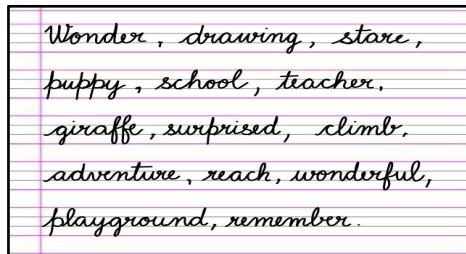 Wonder, drawing, stare,
puppy, school, teacher,
giraffe, surprised, climb,
adventure, reach, wonderful,
playground, remember.